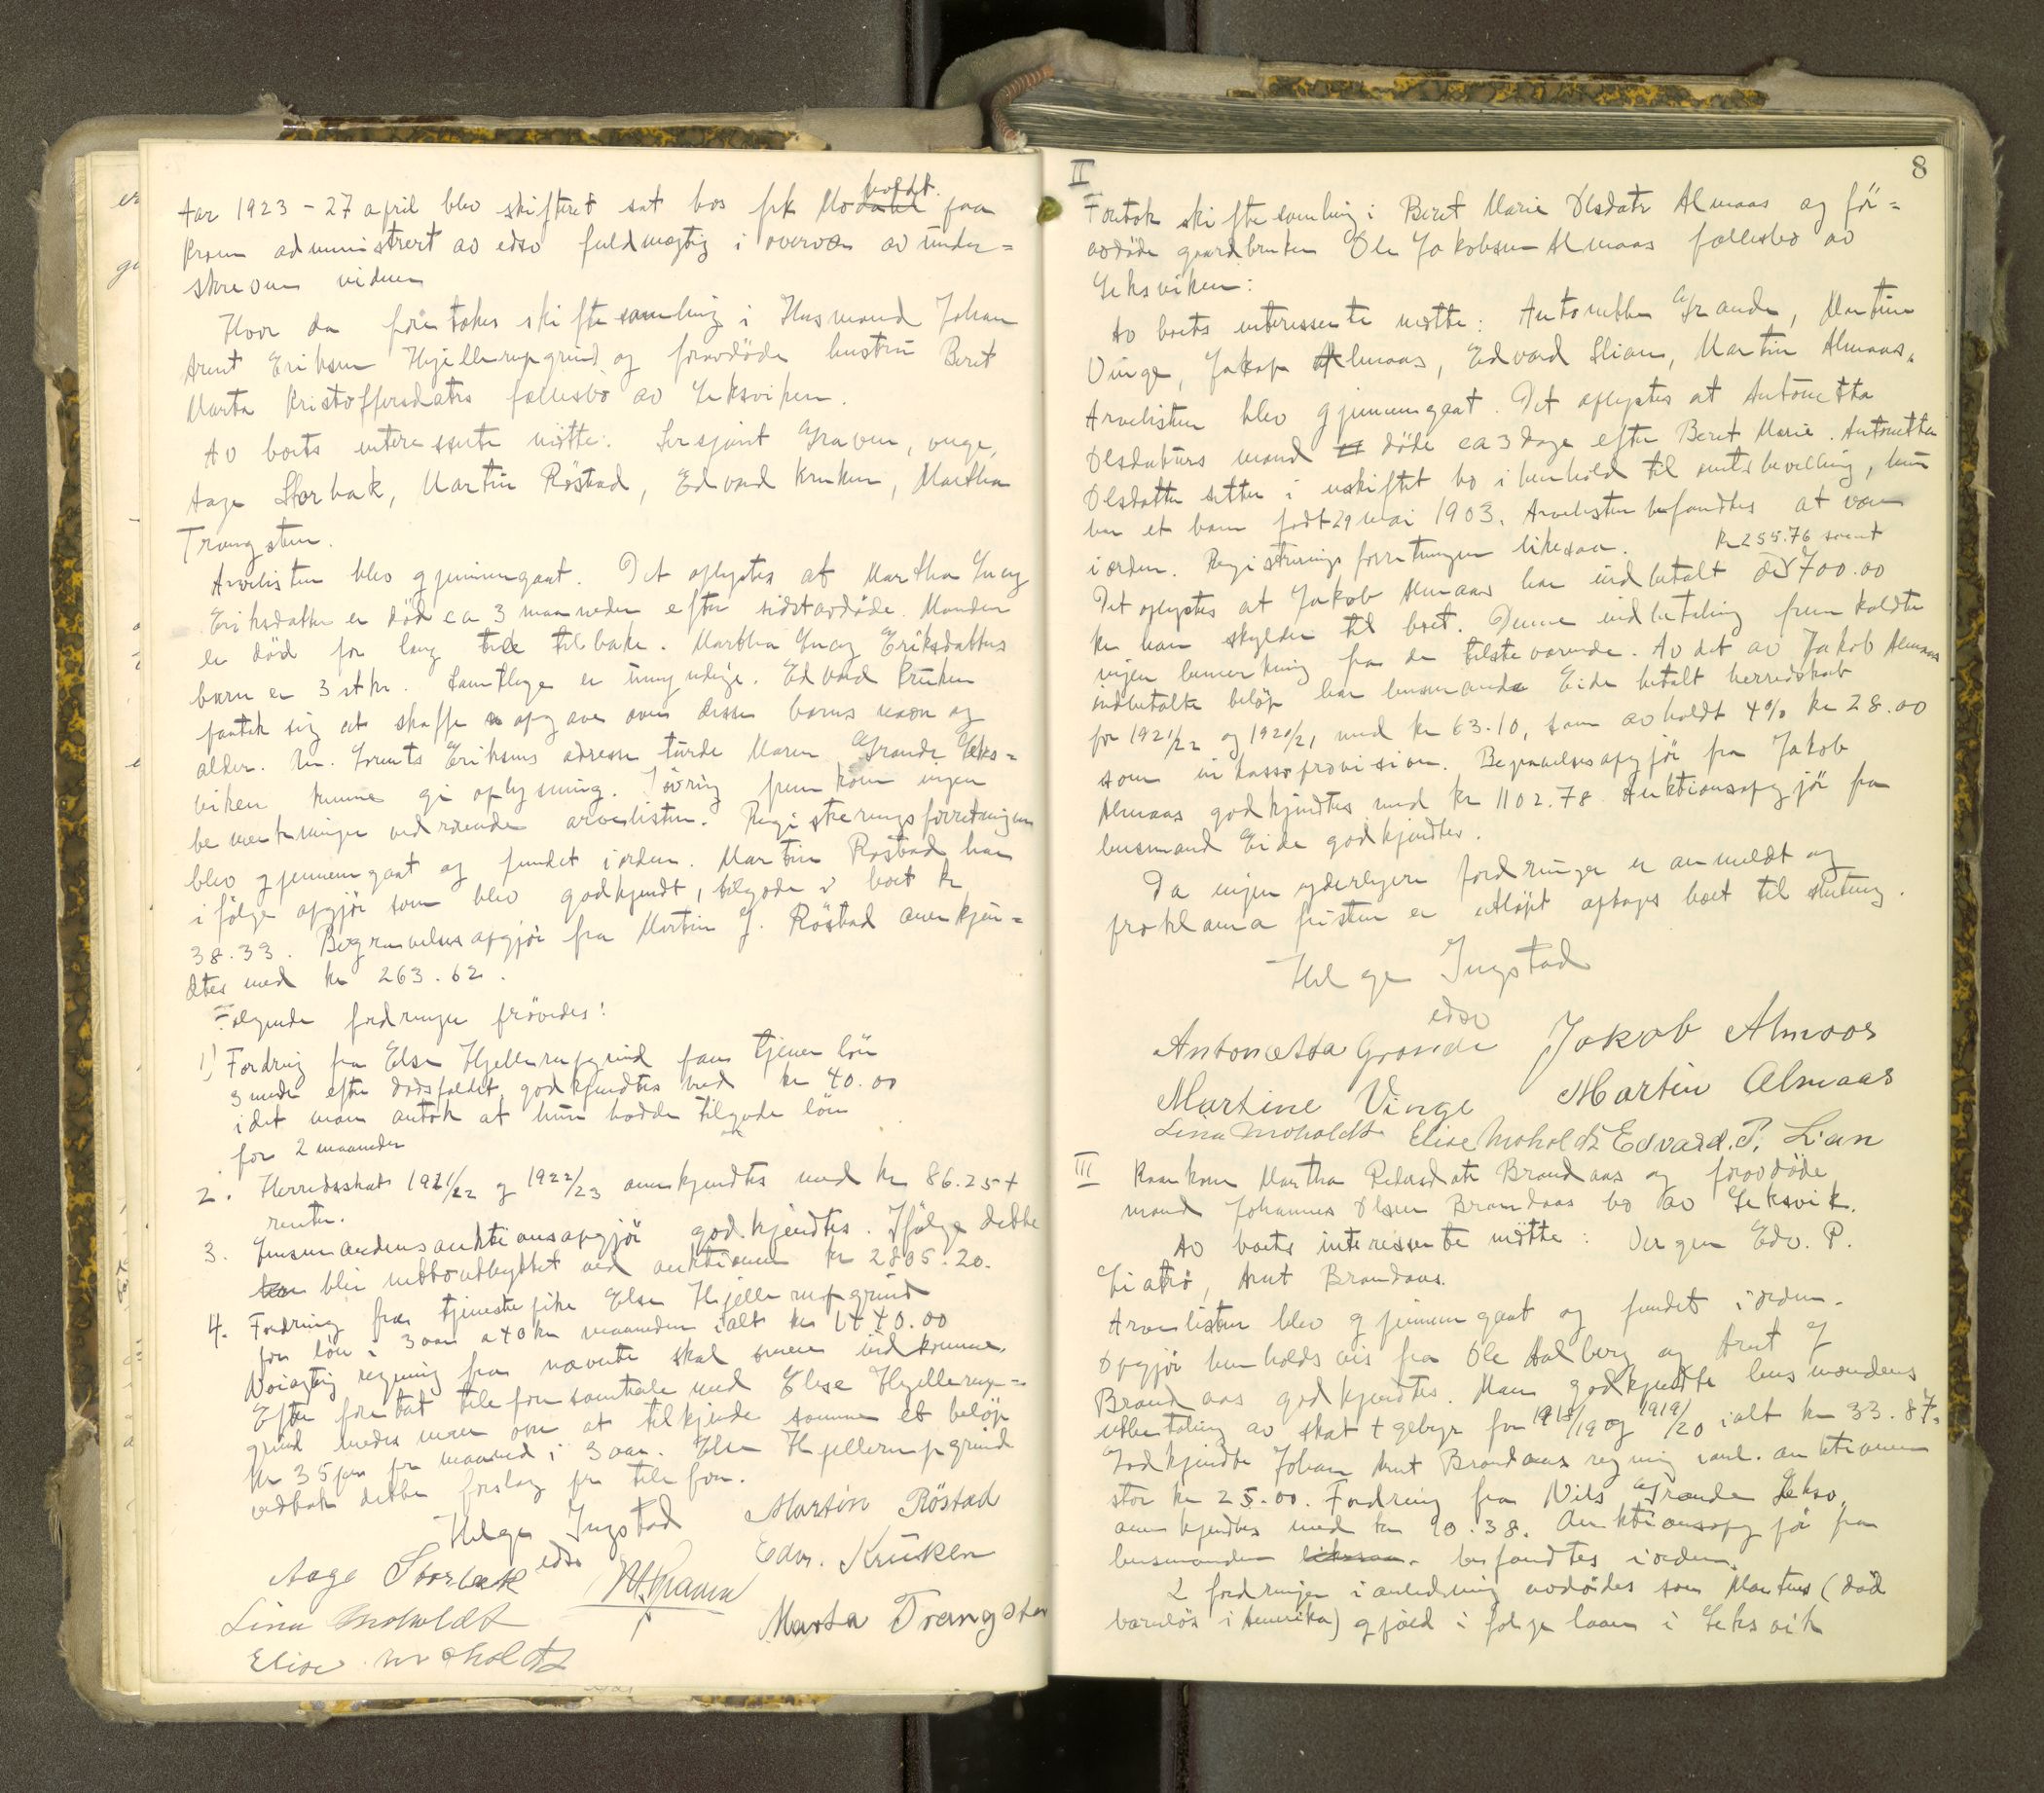 Aar 1923 - 27 april blev skifteret sat hos frk Moholdt paa
Kroen administrert av edsv fuldmægtig i overvær av under=
skrevne vidner
Hvor da foretokes skiftesamling i Husmand Johan
Arnt Eriksen Hjellerupgrind og foravdøde hustru Beret
Marta Kristoffersdatrs fællesbo av Leksviken.
Av boets interessenter møtte: Sersjant Graven, verge,
Aage Storbak, Martin Röstad, Edvard Kruken, Martha
Trangsten.
Arvelisten blev gjennemgaat. Det oplystes at Martha Lucy
Eriksdatter er död ca 3 maaneder efter sidstavdöde. Manden
er död for lang tid tilbake. Martha Lucy Eriksdatters
barn er 3 stkr. Samtlige er umyndige. Edvard Kruken
paatok sig at skaffe opgave over disse barns navn og
alder. Lorents Eriksens adresse turde Maren Grande Leks=
viken kunne gi oplysning. Iövrig frem kom ingen
bemerkninger vedrörende arvelisten. Registreringsforretningen
blev gjennemgaat og fundet iorden. Martin Röstad har
ifölge opgjör som blev godkjendt, tilgode i boet kr
38.33. Begravelsesopgjör fra Martin J. Röstad anerkjen=
dtes med kr 263.62.
Fölgende fordringer prövedes:
1) Fordring fra Else Hjellerupgrind paa tjenerlön
3 mndr efter dödsfaldet, godkjendtes med kr 40.00
idet man antok at hun hadde tilgode lön
for 2 maaneder
2. Herredsskat 1921/22 og 1922/23 anerkjendtes med kr 86.25 +
renter.
3. Lensmandens auktionsopgjör godkjendtes. Ifölge dette
blir nettoutbyttet ved auktionen kr 2805.20.
4. Fordring fra tjenestepike Else Hjellerupgrind
for lön i 3 aar a 40 kr maaneden ialt kr 1440.00
Nöiagtig regning fra nævnte skal senere indkomme.
Efter foretat telefonsamtale med Else Hjellerup=
grind enedes man om at tilkjende samme et belöp
kr 35 pr maaned i 3 aar. Else Hjellerupgrind
vedtok dette forslag pr telefon.
Helge Ingstad
edsv
Martin Röstad
Aage Storbak
Edv. Kruken
Lina Moholdt
Marta Trangsten
Elise Moholdt
8
II
Foretok skiftesamling i Beret Marie Olsdatr Almaas og för=
avdöde gaardbruker Ole Jakobsen Almaas fællesbo av
Leksviken:
Av boets interessenter møtte: Antonette Grande, Martine
Vinge, Jakop Almaas, Edvard Lian, Martin Almaas.
Arvelisten blev gjennemgaat. Det oplystes at Antonetta
Olsdatters mand döde ca 3 dage efter Beret Marie. Antonetta
Olsdatter sitter i uskiftet bo i henhold til amtsbevilling, hun
har et barn födt 29 mai 1903. Arvelisten befandtes at være
iorden. Registreringsforretningen likesaa.
kr 255.76 samt
Det oplystes at Jakob Almaas har indbetalt de 700.00
kr han skylder til boet. Denne indbetaling fremkaldte
ingen bemerkning fra de tilstedeværende. Av det av Jakob Almaas
indbetalte belöp har lensmand Eide betalt herredskat
for 1921/22 og 1920/21 med kr 63.10, samt avholdt 4% kr 28.00
som inkassoprovision. Begravelsesopgjör fra Jakob
Almaas godkjendtes med kr 1102.78. Auktionsopgjör fra
lensmand Eide godkjendtes.
Da ingen yderligere fordringer er anmeldt og
proklamafristen er utlöpt optages boet til slutning.
Helge Ingstad
edsv
Antonetta Grande Jakob Almaas
Martine Vinge Martin Almaas
Lina Moholdt Elise Moholdt Edvard. P. Lian
III Kaarkone Martha Pedersdatr Brandaas og foravdöde
mand Johannes Olsen Brandaas bo av Leksvik.
Av boets interessenter møtte: Vergen Edv. P.
Liatrö, Arnt Brandaas.
Arvelisten blev gjennemgaat og fundet i orden.
Opgjör henholdsvis fra Ole Aalberg og Arnt J
Brandaas godkjendtes. Man godkjendte lensmandens
utbetaling av skat + gebyr for 1918/19 og 1919/20 ialt kr 33.87.
Godkjendte Johan Arnt Brandaas regning anl. auktionen
stor kr 25.00. Fordring fra Nils Grande Leksv.
anerkjendtes med kr 90.38. Auktionsopgjör fra
lensmanden likesaa. befandtes iorden.
2 fordringer i anledning avdödes sön Martins (död
barnlös i Amerika) gjæld ifölge laan i Leksvik